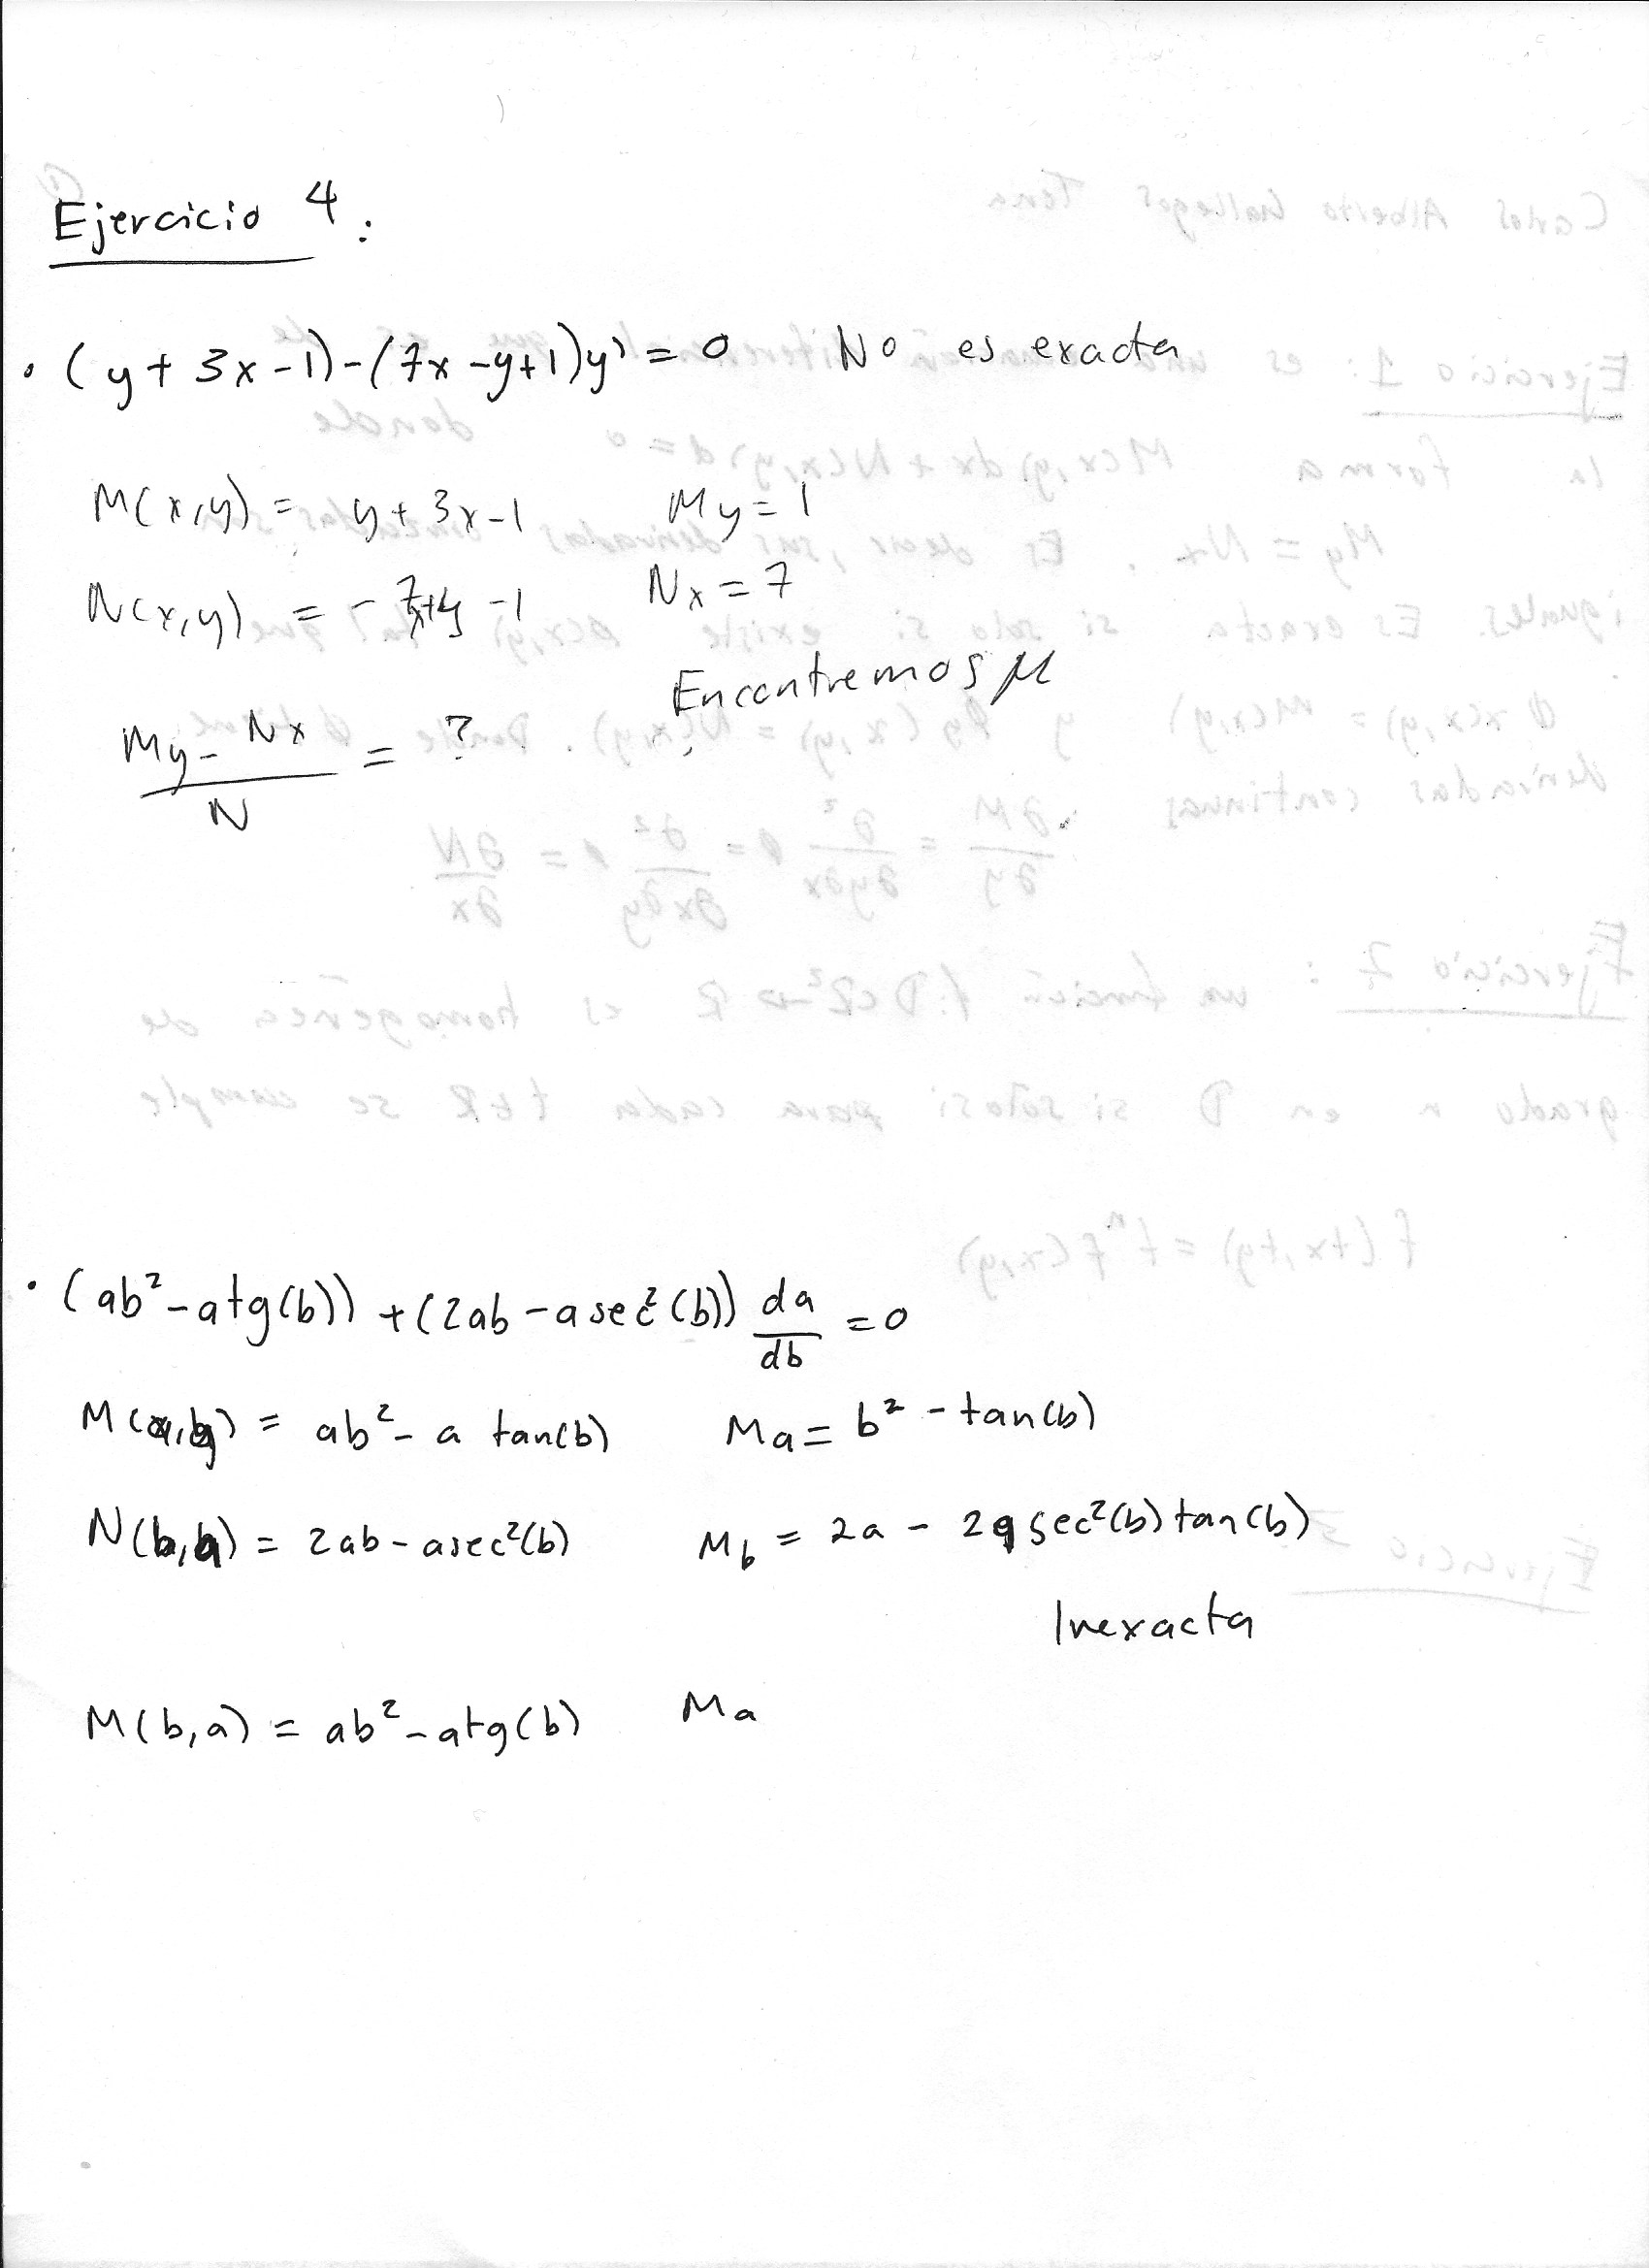 Ejercicio 4:
· (y + 3x - 1) - (7x - y + 1)y' = 0 No es exacta
M(x,y) = y + 3x - 1 My = 1
N(x,y) = - 7x+y - 1 Nx = 7
Encontremos μ
My - Nx / N = ?
· (ab² - atg(b)) + (2ab - asec²(b)) da/db = 0
M(a,b) = ab² - a tan(b) Ma = b² - tan(b)
N(b,a) = 2ab - asec²(b) Mb = 2a - 2a sec²(b) tan(b)
Inexacta
M(b,a) = ab² - atg(b) Ma